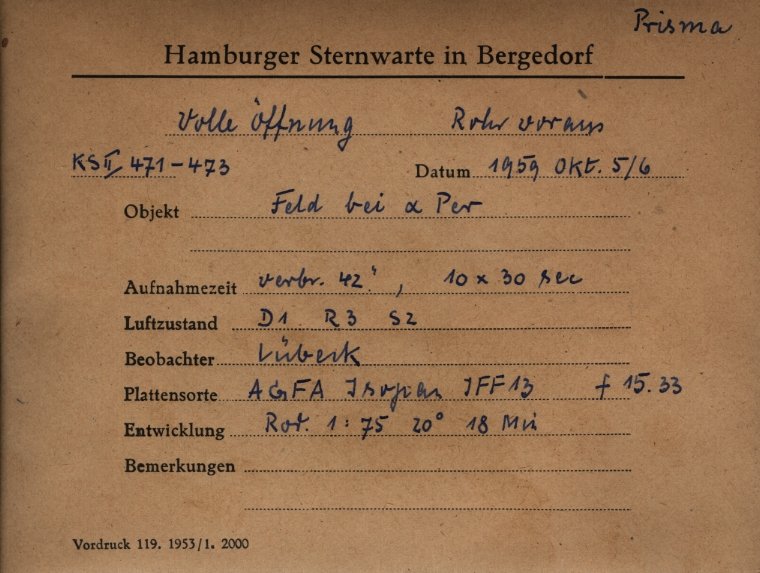 Prisma
Hamburger Sternwarte in Bergedorf
Volle Öffnung Rohr voraus
KS II 471-473 Datum 1959 Okt. 5/6
Objekt Feld bei α Per
Aufnahmezeit verbr. 42", 10 x 30 sec
Luftzustand D1 R3 S2
Beobachter Lübeck
Plattensorte AGFA Isopan IFF13 f 15.33
Entwicklung Rod. 1:75 20° 18 Min
Bemerkungen
Vordruck 119. 1953/1. 2000